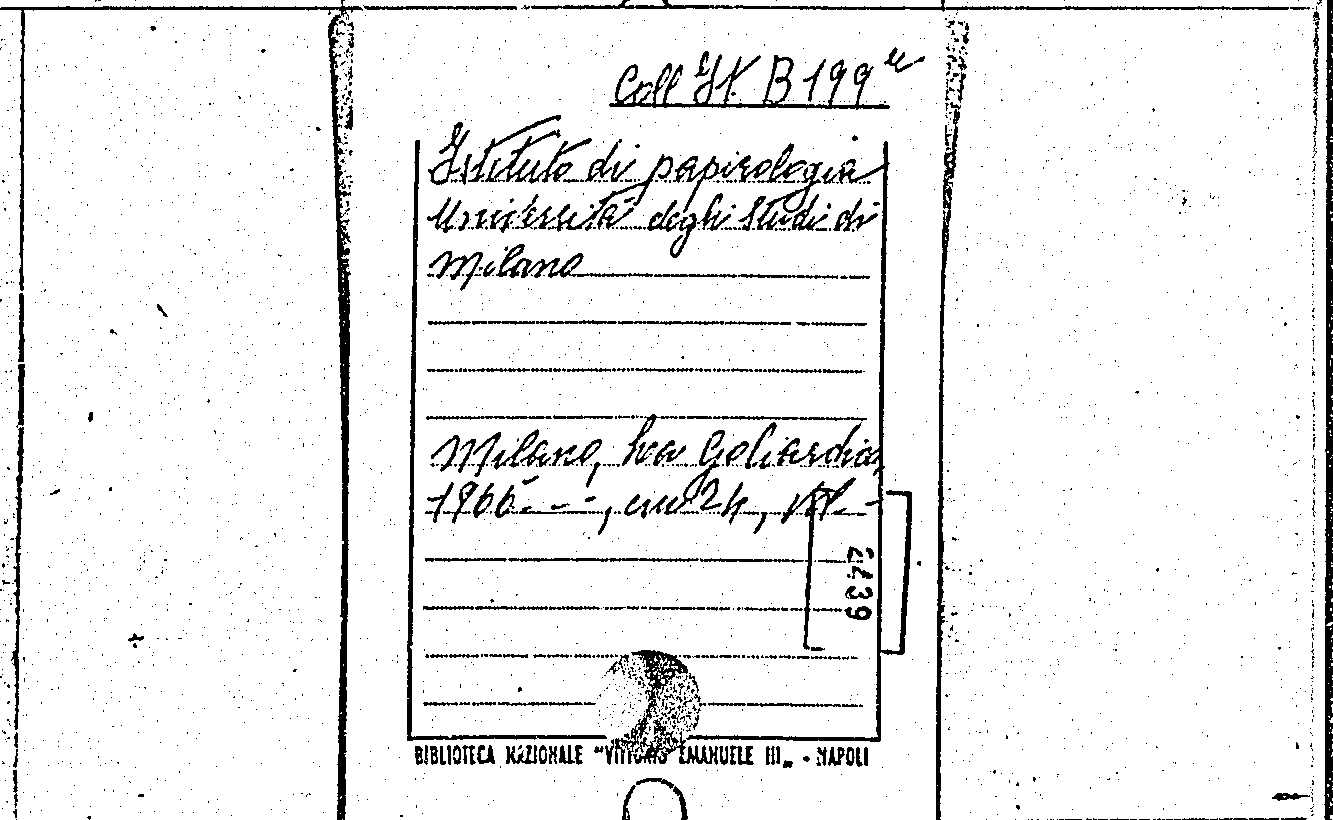 Coll It. B 199
Istituto di papirologia
Università degli Studi di
Milano
Milano, La Goliardica,
1966- - -, cm 24, Vol. -
2439
BIBLIOTECA NAZIONALE "VITTORIO EMANUELE III„ - NAPOLI